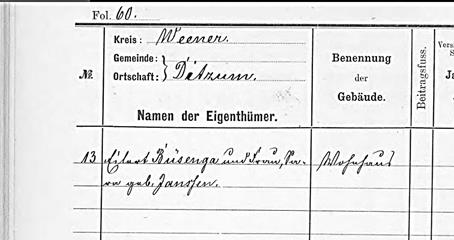 Fol. 60.
Kreis: Weener.
Gemeinde:
Ortschaft: } Ditzum.
№
Benennung
der
Gebäude.
Beitragsfuss.
Namen der Eigenthümer.
13 Eilert Büsenga und Frau, Sa- Wohnhaus
ra geb. Janssen.